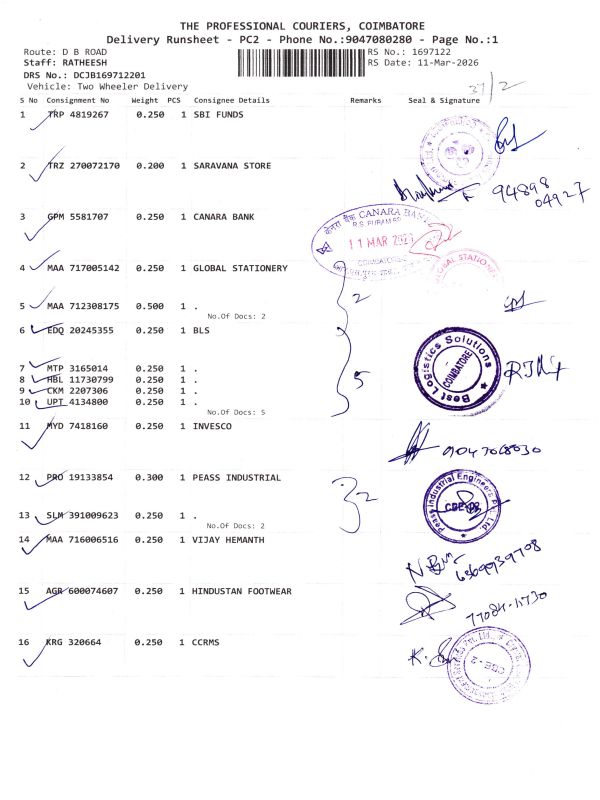 THE PROFESSIONAL COURIERS, COIMBATORE
Delivery Runsheet - PC2 - Phone No.:9047080280 - Page No.:1
Route: D B ROAD
RS No.: 1697122
Staff: RATHEESH
RS Date: 11-Mar-2026
DRS No.: DCJB169712201
Vehicle: Two Wheeler Delivery
27/2
S No Consignment No Weight PCS Consignee Details Remarks Seal & Signature
1 TRP 4819267 0.250 1 SBI FUNDS
2 TRZ 270072170 0.200 1 SARAVANA STORE
94898
04927
3 GPM 5581707 0.250 1 CANARA BANK
केनरा बैंक CANARA BANK
R.S. PURAM
11 MAR
COIMBATORE
4 MAA 717005142 0.250 1 GLOBAL STATIONERY
GLOBAL STATIONERY
5 MAA 712308175 0.500 1 .
No.Of Docs: 2
2
6 EDQ 20245355 0.250 1 BLS
Best Logistics Solutions
COIMBATORE
7 MTP 3165014 0.250 1 .
8 HBL 11730799 0.250 1 .
9 CKM 2207306 0.250 1 .
10 UPT 4134800 0.250 1 .
No.Of Docs: 5
5
11 MYD 7418160 0.250 1 INVESCO
9047068030
12 PRO 19133854 0.300 1 PEASS INDUSTRIAL
2
Peass Industrial Engineers Pvt. Ltd.
13 SLM 391009623 0.250 1 .
No.Of Docs: 2
14 MAA 716006516 0.250 1 VIJAY HEMANTH
15 AGR 600074607 0.250 1 HINDUSTAN FOOTWEAR
16 KRG 320664 0.250 1 CCRMS
CBE-2